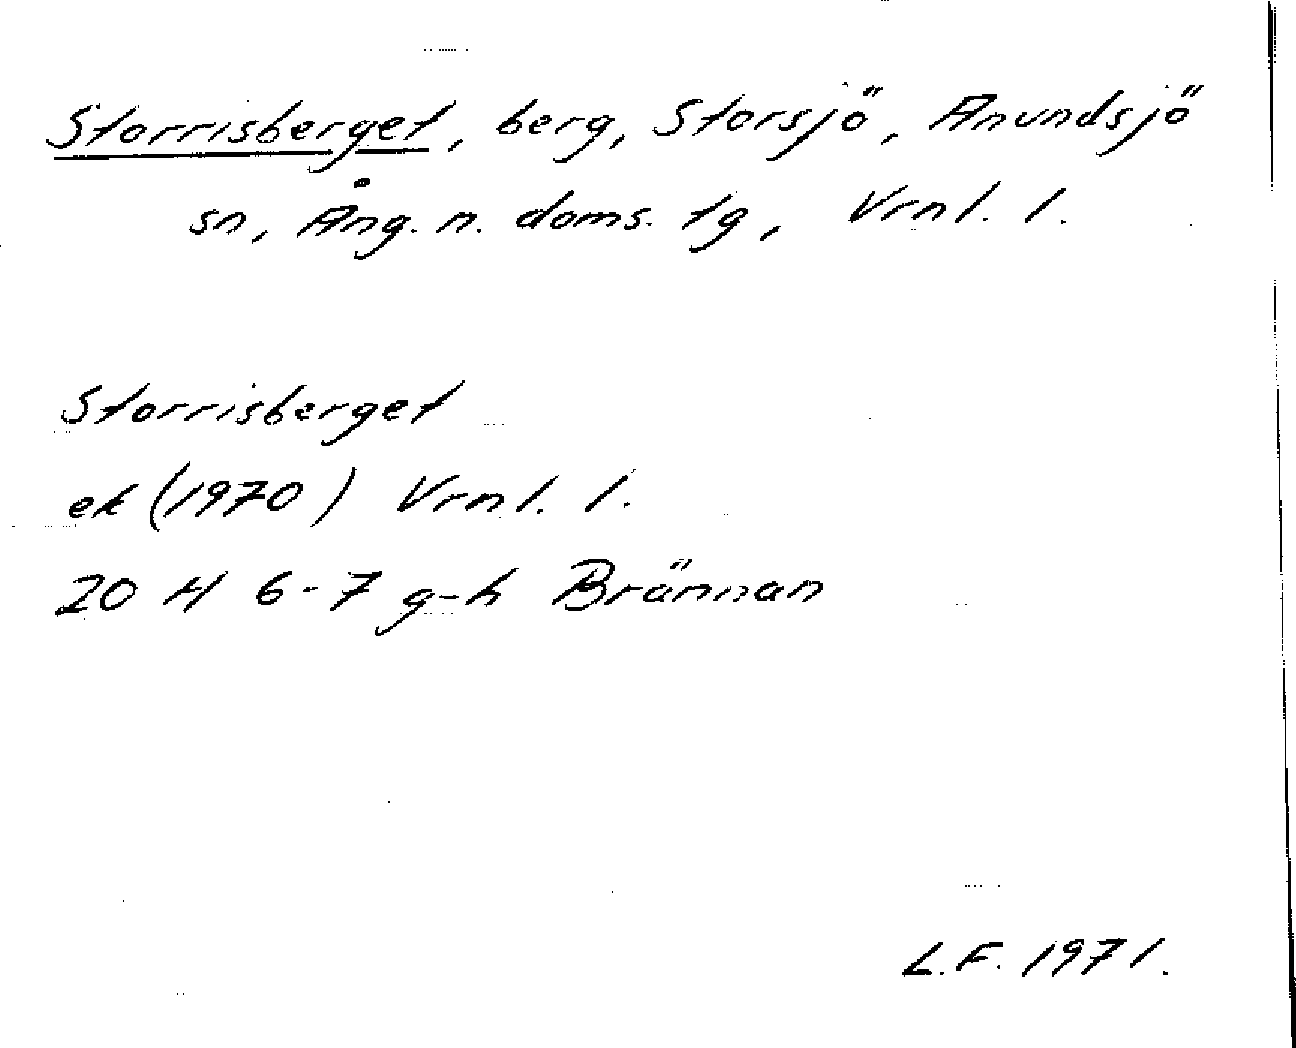 Storrisberget, berg, Storsjö, Anundsjö
sn, Ång. n. doms. tg, Vrnl. l.
Storrisberget
ek (1970) Vrnl. l.
20 H 6-7 g-h Brännan
L.F. 1971.